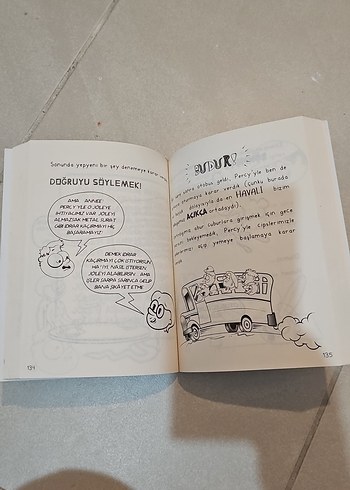 Sonunda yepyeni bir şey denemeye karar
DOĞRUYU SÖYLEMEK!
AMA... ANNEE!
PERCY'YLE O JOLEYE
İHTİYACIMIZ VAR! JOLEYİ
ALMAZSAK METAL SURAT
GİBİ İDRAR KAÇIRMAYI HİÇ
BAŞARAMAYIZ!
DEMEK İDRAR
KAÇIRMAYI ÇOK İSTİYORSUN,
HA? İYİ, NASIL İSTERSEN.
JOLEYİ ALABİLİRSİN... AMA
İŞLER SARPA SARINCA GELİP
BANA ŞİKÂYET ETME!
134
sonra otobüs geldi. Percy'yle ben de
karar verdik (çünkü burada
da en HAVALI bizim
AÇIKÇA ortadaydı).
abur cuburlara girişmek için gece
bekleyemedik. Percy'yle cipslerimizle
açıp yemeye başlamaya karar
135